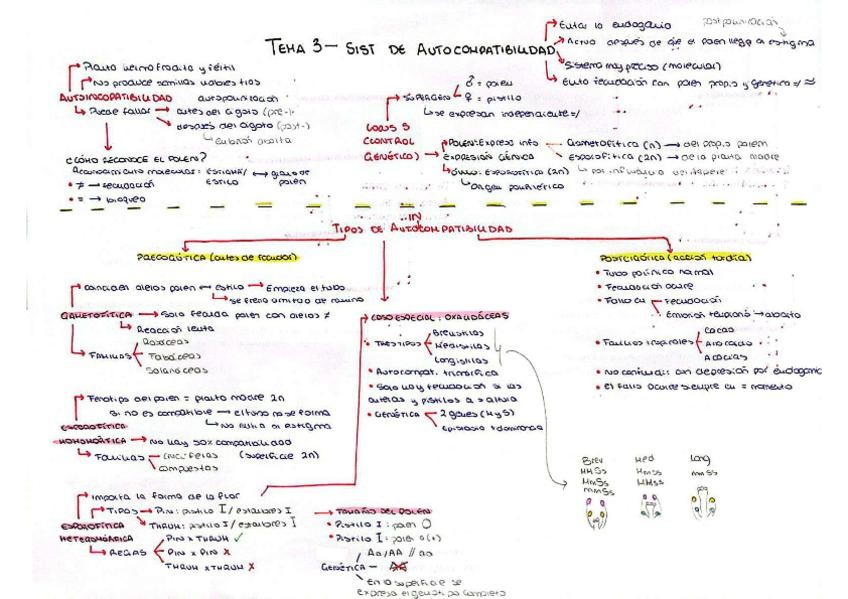 TEMA 3 - SIST DE AUTOCOMPATIBILIDAD
Evitar la endogamia
postpolinización
Actua después de que el polen llega a estigma
Sistema muy preciso (molecular)
Evita fecundación con polen propio y genética =/≈
Planta hermafrodita y fértil
No produce semillas viables tras autopolinización
AUTOINCOMPATIBILIDAD
Puede fallar → antes del cigoto (pre-)
después del cigoto (post-)
embrión aborta
¿CÓMO RECONOCE EL POLEN?
Reconocimiento molecular: ESTIGMA/ESTILO ↔ grano de polen
• ≠ → fecundación
• = → bloqueo
LOCUS S
CONTROL
GENÉTICO)
SUPERGEN
♂ = polen
♀ = pistilo
se expresan independiente/
POLEN: Express info
Gametofítica (n) → del propio polen
Esporofítica (2n) → de la planta madre
EXPRESIÓN GÉNICA
Esporofítica (2n)
Origen polimérico
TIPOS DE AUTOCOMPATIBILIDAD
IN
PRECIGÓTICA (antes de fecundar)
POSTCIGÓTICA (acción tardía)
coinciden alelos polen ↔ estilo → Empieza el tubo
se frena a mitad de camino
GAMETOFÍTICA → Solo fecunda polen con alelos ≠
Reacción lenta
FAMILIAS
Rosáceas
Fabáceas
Solanáceas
CASO ESPECIAL: OXALIDÁCEAS
• TRES TIPOS
Brevistilas
Medistilas
Longistilas
• Autocompat. trimórfica
• Solo hay fecundación si las anteras y pistilos = altura
• GENÉTICA
2 genes (M y S)
Epistasia + dominancia
• Tubo polínico normal
• Fecundación ocurre
• Falla en
Fecundación
Embrión temprano → aborto
• Familias
Cacao
Aguacate
Acacias
• No confundir con depresión por endogamia
• El fallo ocurre siempre en = momento
Fenotipo del polen = planta madre 2n
Si no es compatible → el tubo no se forma
No entra al estigma
ESPOROFÍTICA
HOMOMÓRFICA → No hay 50% compatibilidad
Familias
Crucíferas
Compuestas
(superficie 2n)
Importa la forma de la flor
TIPOS → PIN: pistilo I / estambres I
THRUM: pistilo I / estambres I
ESPOROFÍTICA
HETEROMÓRFICA
REGLAS
PIN x THRUM ✓
PIN x PIN X
THRUM x THRUM X
TAMAÑO DEL POLEN
• Pistilo I: polen O
• Pistilo I: polen o (+)
GENÉTICA
Aa/AA // aa
AA
En la superficie se expresa el genotipo completo
Brev
MMSS
MMSs
mmSs
Med
MMSS
MMSS
Long
mmSS